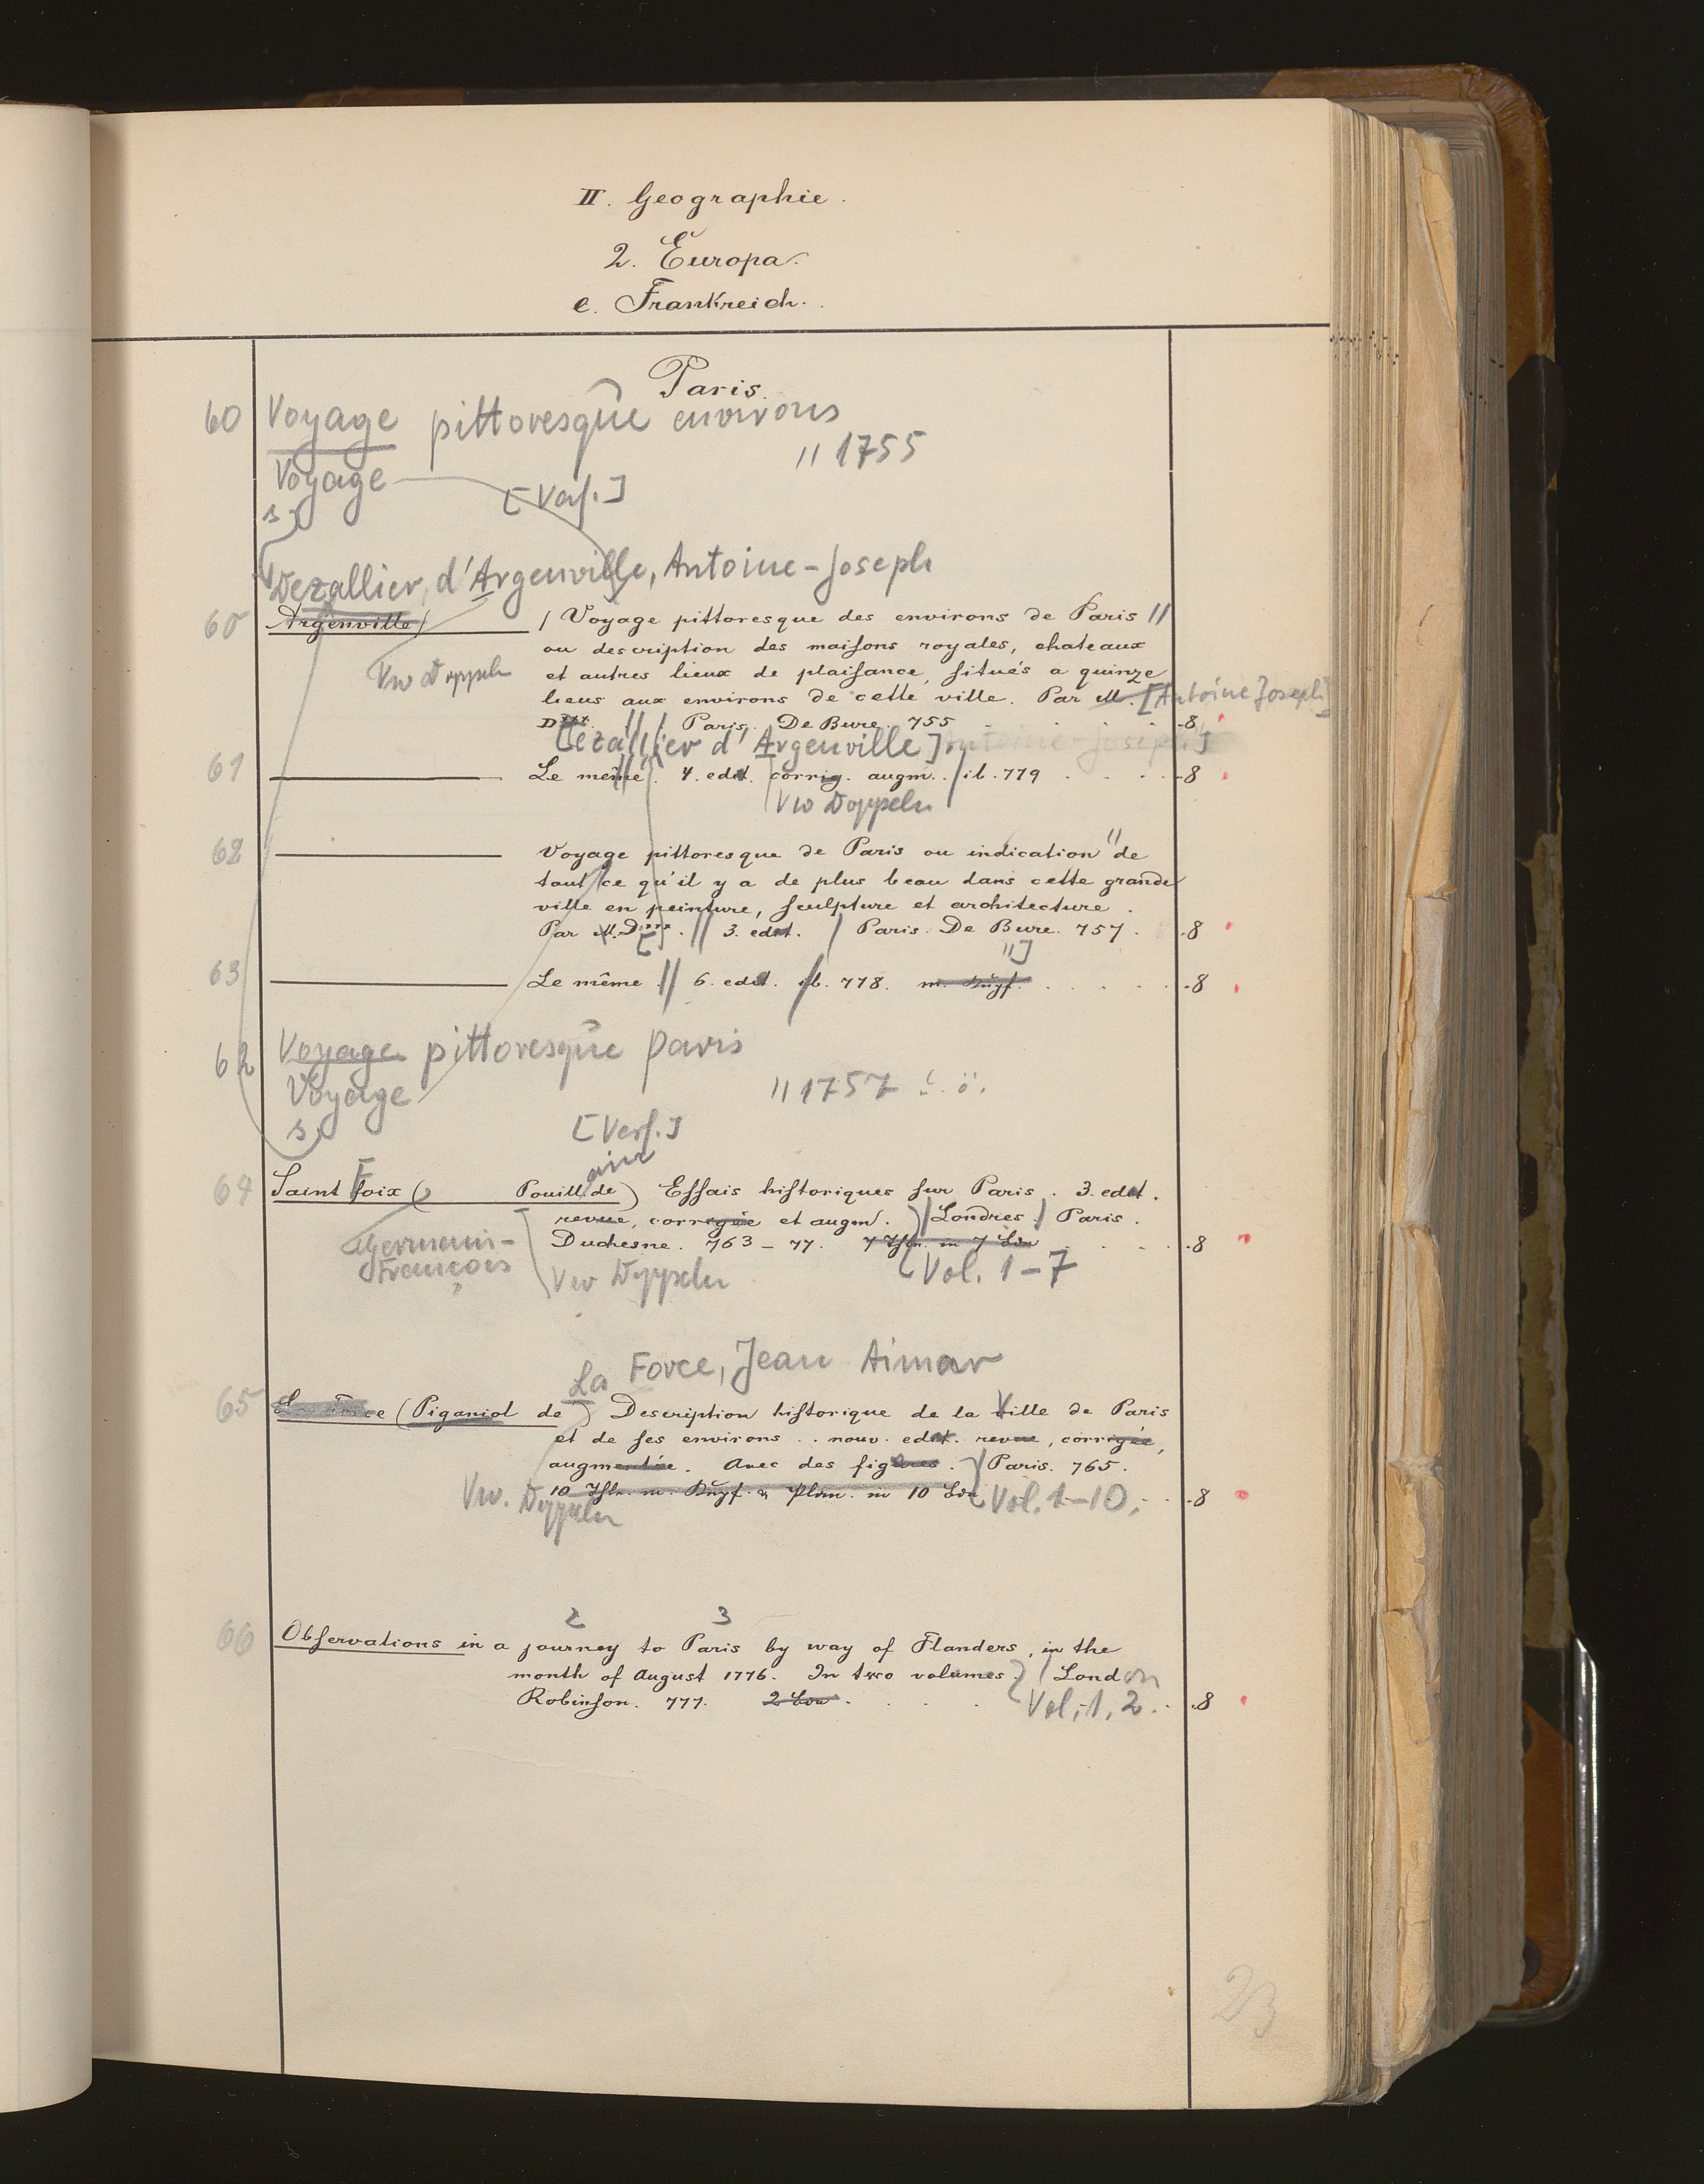 II. Geographie.
2. Europa.
e. Frankreich.
Paris.
60 Voyage pittoresque environs
Voyage // 1755
s. [Verf.]
Dezallier, d'Argenville, Antoine-Joseph
60 Argenville) / Voyage pittoresque des environs de Paris //
ou description des maisons royales, chateaux
Vw Doppeln et autres lieux de plaisance, situés a quinze
lieus aux environs de cette ville. Par M. [Antoine Joseph]
D***. // Paris, De Bure. 755 . . . . 8
[Dezallier d'Argenville]
61 Le même. // 4. edit. corrig. augm. / ib. 779 . . . . 8
Vw Doppeln
62 Voyage pittoresque de Paris ou indication // de
tout ce qu'il y a de plus beau dans cette grande
ville en peinture, sculpture et architecture.
Par M. D***. // 3. edit. / Paris. De Bure. 757. . 8
// ]
63 Le même. // 6. edit. ib. 778. m. Kupf. . . . . 8
62 Voyage pittoresque Paris
Voyage // 1757 u. ö.
s. [Verf.]
ain
64 Saint Foix ( Pouill. de) Essais historiques sur Paris. 3. edit.
revue, corrigée et augm. / Londres / Paris.
Germain- Duchesne. 763 - 77. 7 Thle. in 7 Bdn . . . 8
François Vw Doppeln Vol. 1-7
La Force, Jean Aimar
65 La Force (Piganiol de) Description historique de la Ville de Paris
et de ses environs.. nouv. edit. revue, corrigée,
augmentée. Avec des figures. / Paris. 765.
10 Thle. m. Kupf. u. Plan. in 10 Bdn Vol. 1-10. . . 8
Vw. Doppeln
2 3
66 Observations in a journey to Paris by way of Flanders, in the
month of August 1776. In two volumes. / London
Robinson. 777. 2 Bde . . . Vol. 1, 2. . 8
23